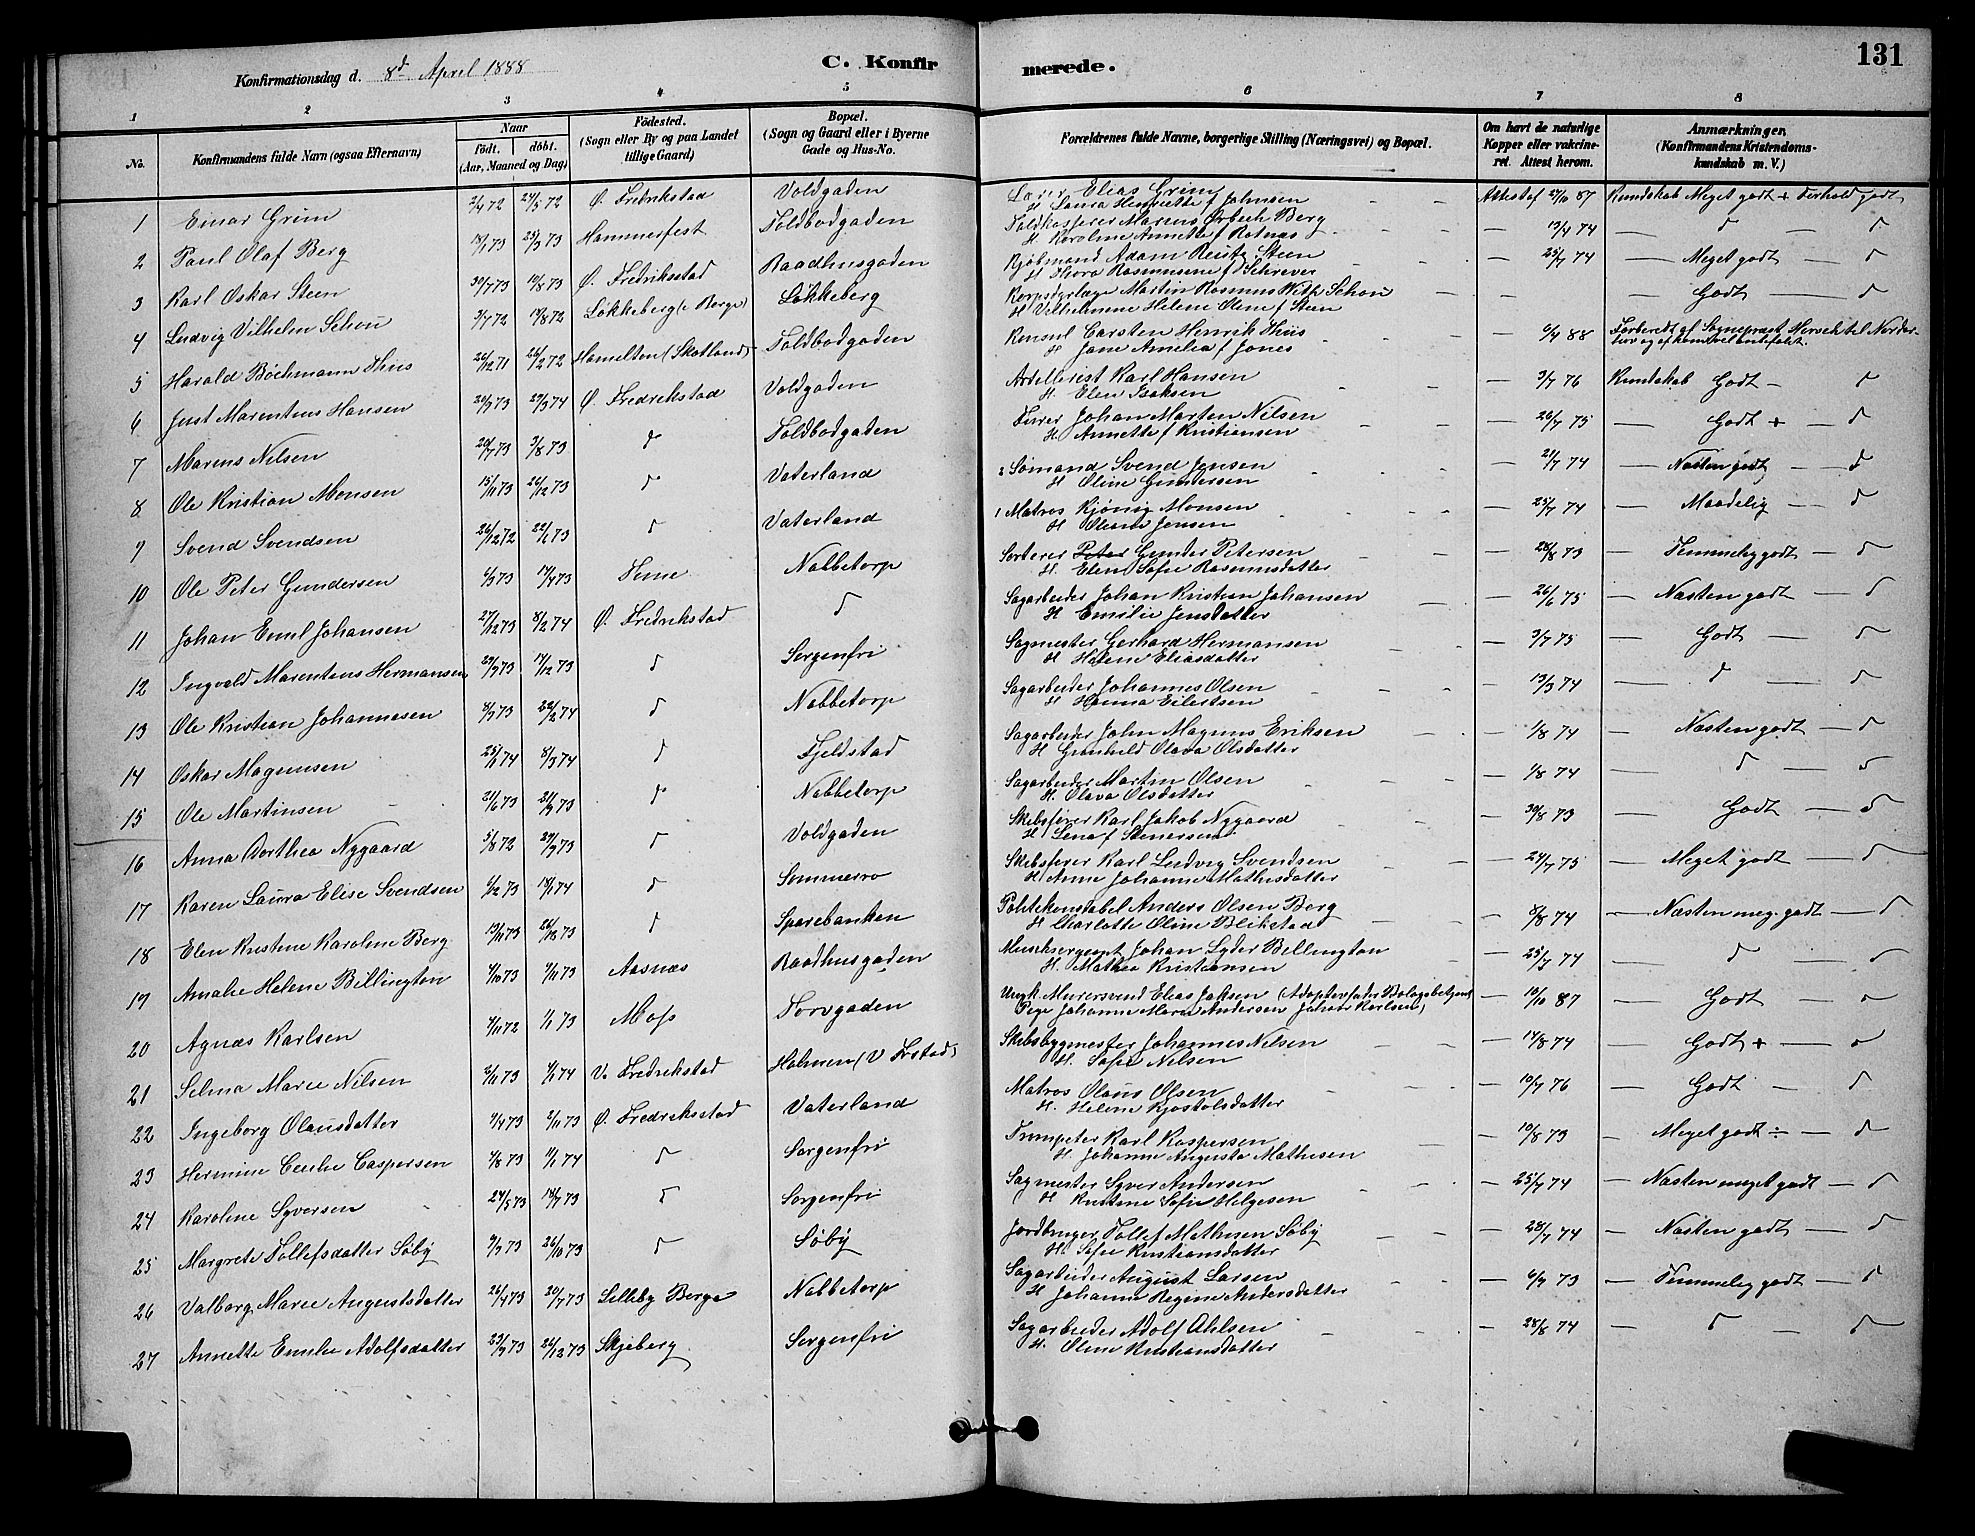 Konfirmationsdag d. 8d April 1888
C. Konfir merede.
131
1 2 3 4 5 6 7 8
No.
Konfirmandens fulde Navn (ogsaa Efternavn)
Naar født. døbt. (Aar, Maaned og Dag)
Födested. (Sogn eller By og paa Landet tillige Gaard)
Bopæl. (Sogn og Gaard eller i Byerne Gade og Hus-No.
Forældrenes fulde Navne, borgerlige Stilling (Næringsvei) og Bopæl.
Om havt de naturlige Kopper eller vakcineret. Attest herom.
Anmærkninger. (Konfirmandens Kristendomskundskab m. V.)
1 Einar Grim 2/4 72 Ø. Fredrikstad Voldgaden Elias Grim Attest af 87 Kundskab Meget godt + Forhold godt
H. Laura Henriette f Johnsen
2 Paul Olaf Berg 73 Hammerfest Toldbodgaden Toldkasserer Marcus Ørbech Berg 13/4 74 — d — d
H. Karoline Annette f
3 Karl Oskar Steen 30/7 73 10/8 73 Ø. Fredriksstad Raadhusgaden Kjøbmand Adam Steen 74 — Meget godt — d
H. Thora Rasmusine f Schrever
4 Ludvig Vilhelm Schou 3/7 72 72 Løkkeberg (i Borge) Løkkeberg Korpsdyrlæge Martin Rasmus With Schou — Godt — d
H. Vilhelmine Helene Oline f Steen
5 Harald Böchmann Thiis 26/12 71 26/2 72 Hamelton (Skotland) Toldbodgaden Konsul Carsten Henrik Thiis 6/4 88 Forberedt af Sognepræst
H Jane Amelia f Jones
6 Just Marentius Hansen 73 74 Ø. Fredrikstad Voldgaden Artillerist Karl Hansen — 3/7 76 Kundskab Godt — d
H. Elen Isaksen
7 Marens Nilsen 20/7 73 3/8 73 d Toldbodgaden Johan Marten Nilsen — 26/7 75 — Godt + — d
H. Annette f Kristiansen
8 Ole Kristian Monsen 15/11 73 26/12 73 d Vaterland 2 Sømand Svend Jensen — 21/7 74 — Næsten godt — d
H Oline Gundersen
9 Svend Svendsen 26/12 72 22/1 73 d Vaterland 1 Matros Monsen — 25/7 74 — Maadelig — d
H. Jensen
10 Ole Peter Gundersen 6/3 73 14/4 73 Nabbetorp Sorterer Gunder Petersen — 28/8 73 — Temmelig godt — d
H. Elen Sofie Rasmusdatter
11 Johan Emil Johansen 27/12 73 8/2 74 Ø. Fredrikstad d Sagarbeider Johan Kristian Johansen — 26/6 75 — Næsten godt — d
H Emilie Jensdatter
12 Ingvald Marentius Hermansen 73 14/12 73 d Sorgenfri Sagmester Gerhard Hermansen — 3/7 75 — Godt — d
H Helene Eliasdatter
13 Ole Kristian Johannesen 73 22/2 74 d Nabbetorp Sagarbeider Johannes Olsen — 13/3 74 — d — d
H Hanna Eilertsen
14 Oskar Magnusen 25/1 74 8/3 74 d Fjeldstad Sagarbeider John Magnus Eriksen — 1/8 74 — Næsten godt — d
H Gunhild Olava Olsdatter
15 Ole Martinsen 21/6 73 73 d Nabbetorp Sagarbeider Martin Olsen — 1/8 74 — d — d
H. Olava Olsdatter
16 Anna Dorthea Nygaard 5/8 72 73 d Voldgaden Skibsfører Karl Jakob Nygaard — 30/8 73 — Godt — d
H Lena f Stenersen
17 Karen Laura Elise Svendsen 6/12 73 18/1 74 d Sommerro Skibsfører Karl Ludvig Svendsen — 24/7 75 — Meget godt — d
H. Anne Johanne Mathisdatter
18 Elen Kristine Karoline Berg 13/11 73 26/12 73 d Sparebanken Politikonstabel Anders Olsen Berg — 8/8 74 — Næsten meg. godt — d
H Charlotte Oline Blikstad
19 Amalie Helene Billington 4/10 73 9/11 73 Aasnæs Raadhusgaden Musiksergeant Johan Lyder Bellington — 25/7 74 — d — d
H. Mathea Kristiansen
20 Agnæs Karlsen 4/11 72 1/1 73 Moss Torvgaden Ungk. Murersvend Elias Jaksen (Adoptivfader Bolagsbetjent — 10/10 87 — Godt — d
Pige Johanne Marie Andersen Jakob Karlsen)
21 Selma Marie Nilsen 6/11 73 4/1 74 V. Fredrikstad Holmen (V Frstad) Skibsbygmester Johannes Nilsen — 14/8 74 — Godt + — d
H. Sofie Nilsen
22 Ingeborg Olausdatter 9/4 73 2/11 73 Ø. Fredriksstad Vaterland Matros Olaus Olsen — 10/7 76 — Godt — d
H. Helene Kjostolsdatter
23 Hermine Cecilie Caspersen 4/8 73 11/1 74 d Sorgenfri Trompeter Karl Kaspersen — 10/8 73 — Meget godt ÷ — d
H. Johanne Augusta Mathisen
24 Karoline Syversen 24/5 73 14/7 73 d Sorgenfri Sagmester Syver Andersen — 25/7 74 — Næsten meget godt — d
H Kristine Sofie Helgesen
25 Margrete Tollefsdatter Søby 9/7 73 26/10 73 d Søby Jordbruger Tollef Mathisen Søby — 28/7 74 — Næsten godt — d
H. Sofie Kristiansdatter
26 Valborg Marie Augustsdatter 26/4 73 20/7 73 Lilleby Borge Nabbetorp Sagarbeider August Larsen — 6/7 73 — Temmelig godt — d
H Johanne Regine Andersdatter
27 Annette Emilie Adolfsdatter 23/9 73 26/12 73 Skjeberg Sorgenfri Sagarbeider Adolf Ahlsen — 28/8 74 — d — d
H. Oline Kristiansdatter